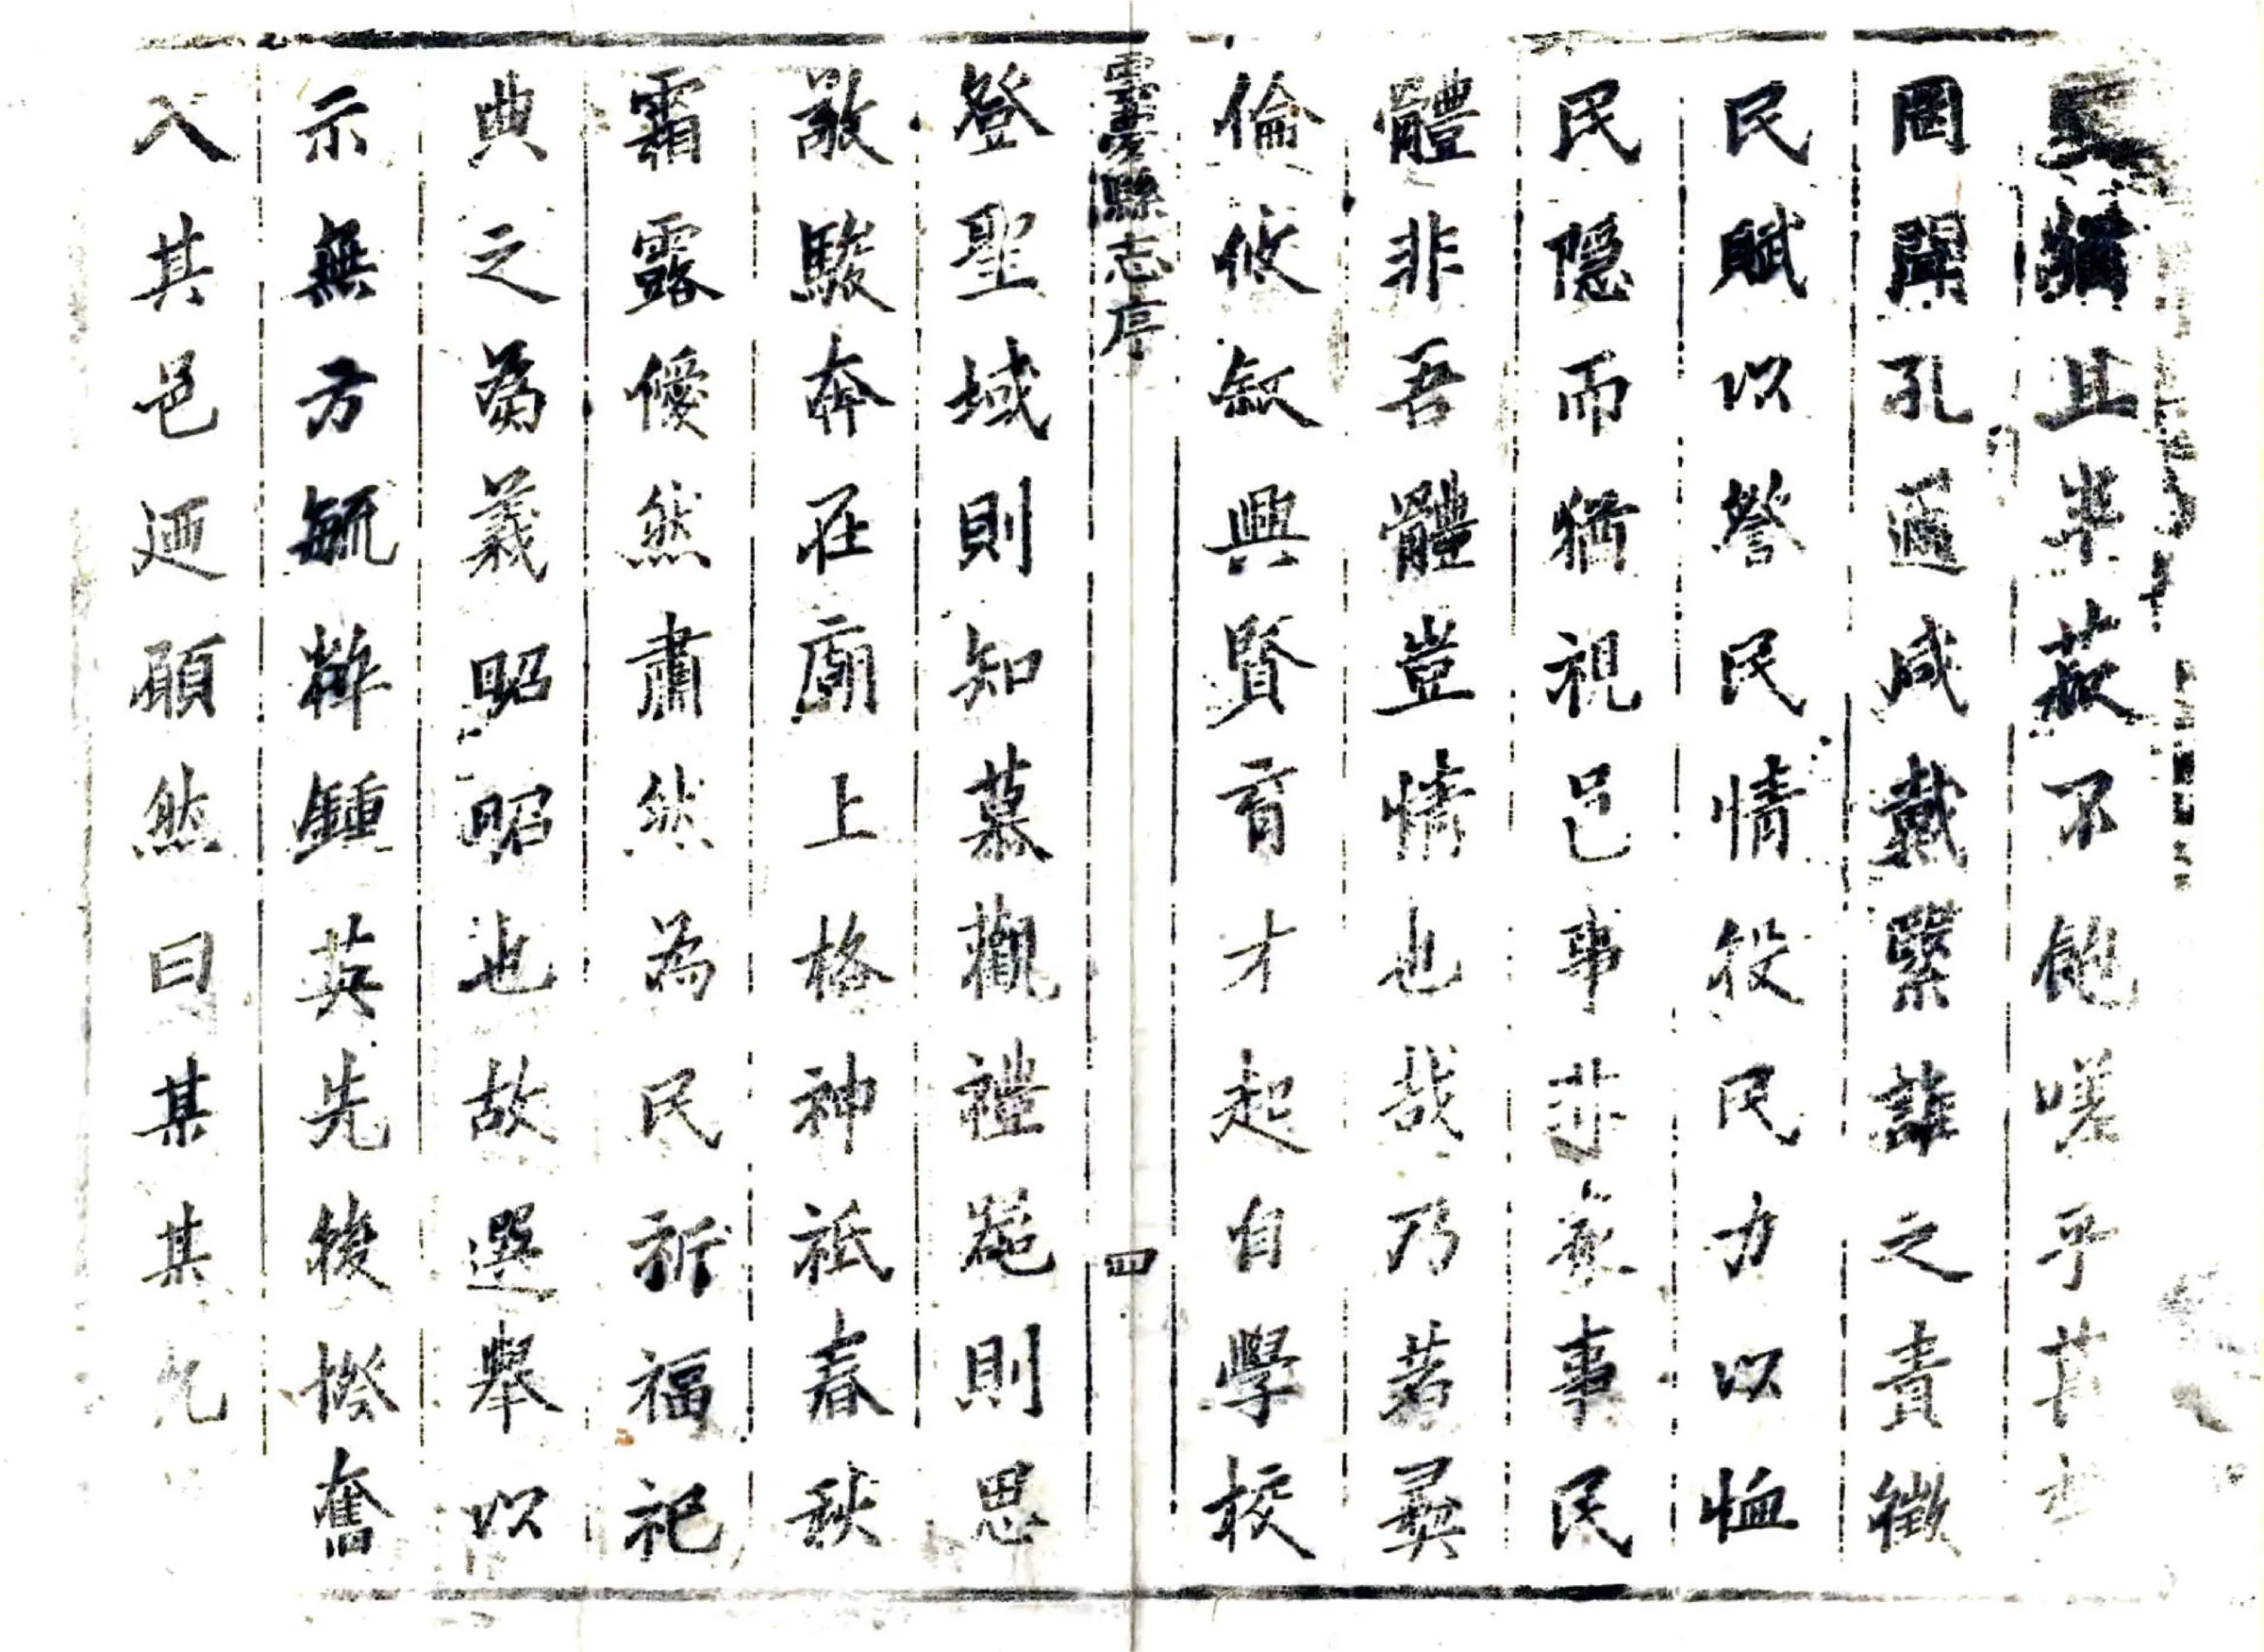 猶且半菽不飽嗟乎其
罔聞孔邇咸戴繄誰之責徵
民賦以謦民情役民力以恤
民隱而猶視已事非家事民
體非吾體豈情也哉乃若彞
倫攸敘興賢育才起自學校
雲夢縣志序
四
登聖域則知慕觀禮器則思
敬駿奔在廟上格神祇春秋
霜露僾然肅然為民祈福祀
典之為義昭昭也故選舉以
示無方毓粹鍾英先後揆奮
入其邑迺頋然曰某某